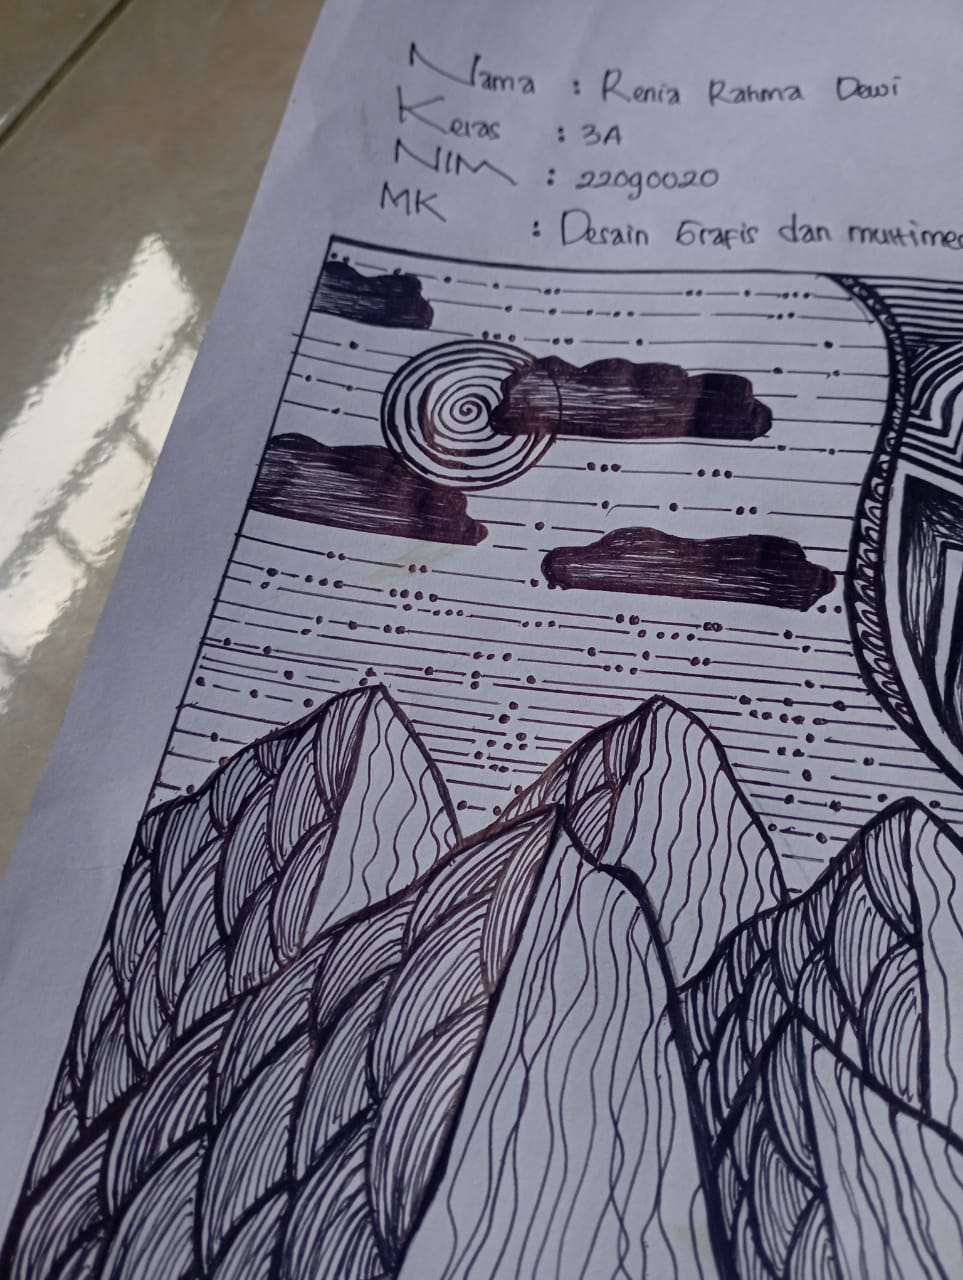 Nama : Renia Rahma Dewi
Kelas : 3A
NIM : 22090020
MK : Desain Grafis dan multimed